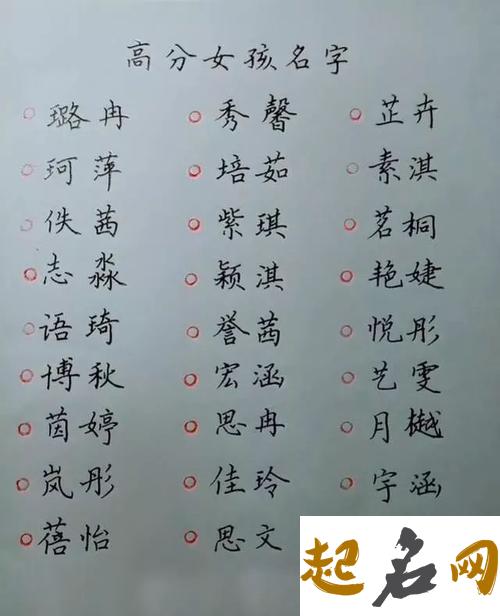 高分女孩名字
璐冉 秀馨 芷卉
珂萍 培茹 素淇
佚茜 紫琪 茗桐
志淼 颖淇 艳婕
语琦 誉茜 悦彤
博秋 宏涵 艺雯
茵婷 思冉 月樾
岚彤 佳玲 宇涵
蓓怡 思文
起名网